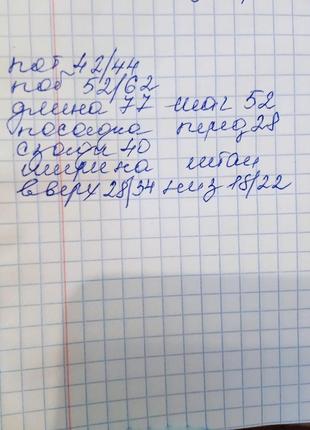 пот 42/44
поб 52/62
длина 77 шаг 52
посадка перед 28
сзади 40
ширина штан
вверх 28/34 низ 18/22